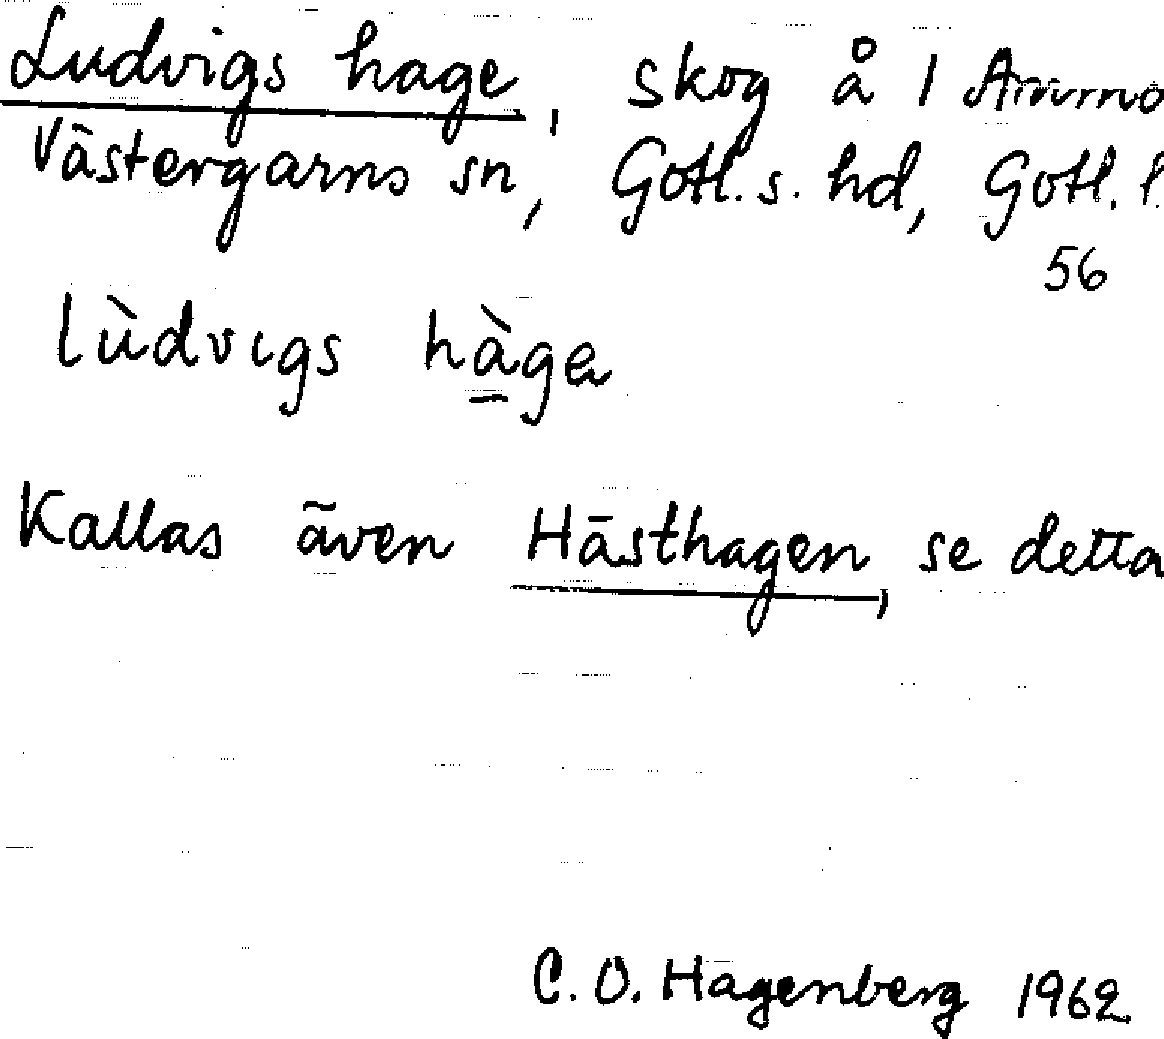 Ludvigs hage, skog å 1 Ammo
Västergarns sn, Gotl. s. hd, Gotl. l.
56
lùdvıgs hàga
Kallas även Hästhagen, se detta
C. O. Hagenberg 1962